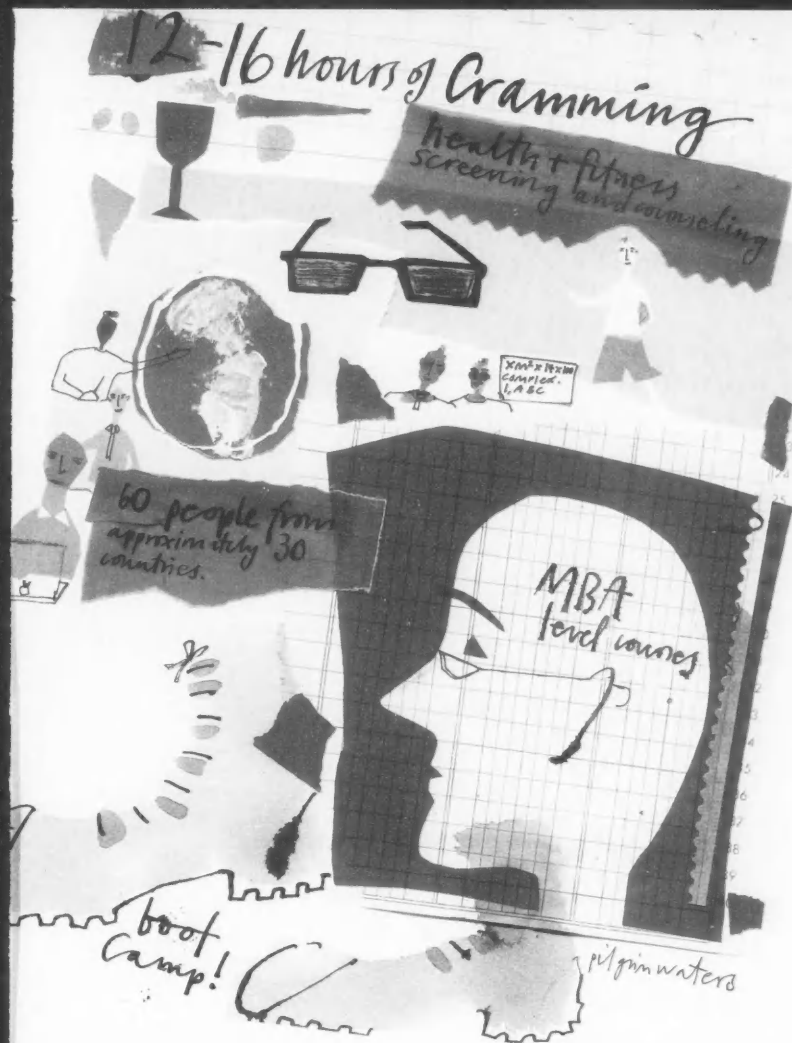 12-16 hours of Cramming
health + fitness
screening and counseling
60 people from
approximately 30
countries.
MBA
level courses
boot
Camp!
pilgrimwaters